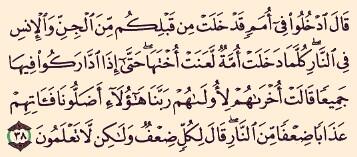 قَالَ ٱدْخُلُوا۟ فِىٓ أُمَمٍ قَدْ خَلَتْ مِن قَبْلِكُم مِّنَ ٱلْجِنِّ وَٱلْإِنسِ
فِى ٱلنَّارِ ۖ كُلَّمَا دَخَلَتْ أُمَّةٌ لَّعَنَتْ أُخْتَهَا ۖ حَتَّىٰٓ إِذَا ٱدَّارَكُوا۟ فِيهَا
جَمِيعًا قَالَتْ أُخْرَىٰهُمْ لِأُولَىٰهُمْ رَبَّنَا هَٰٓؤُلَآءِ أَضَلُّونَا فَـَٔاتِهِمْ
عَذَابًا ضِعْفًا مِّنَ ٱلنَّارِ ۖ قَالَ لِكُلٍّ ضِعْفٌ وَلَٰكِن لَّا تَعْلَمُونَ ٣٨